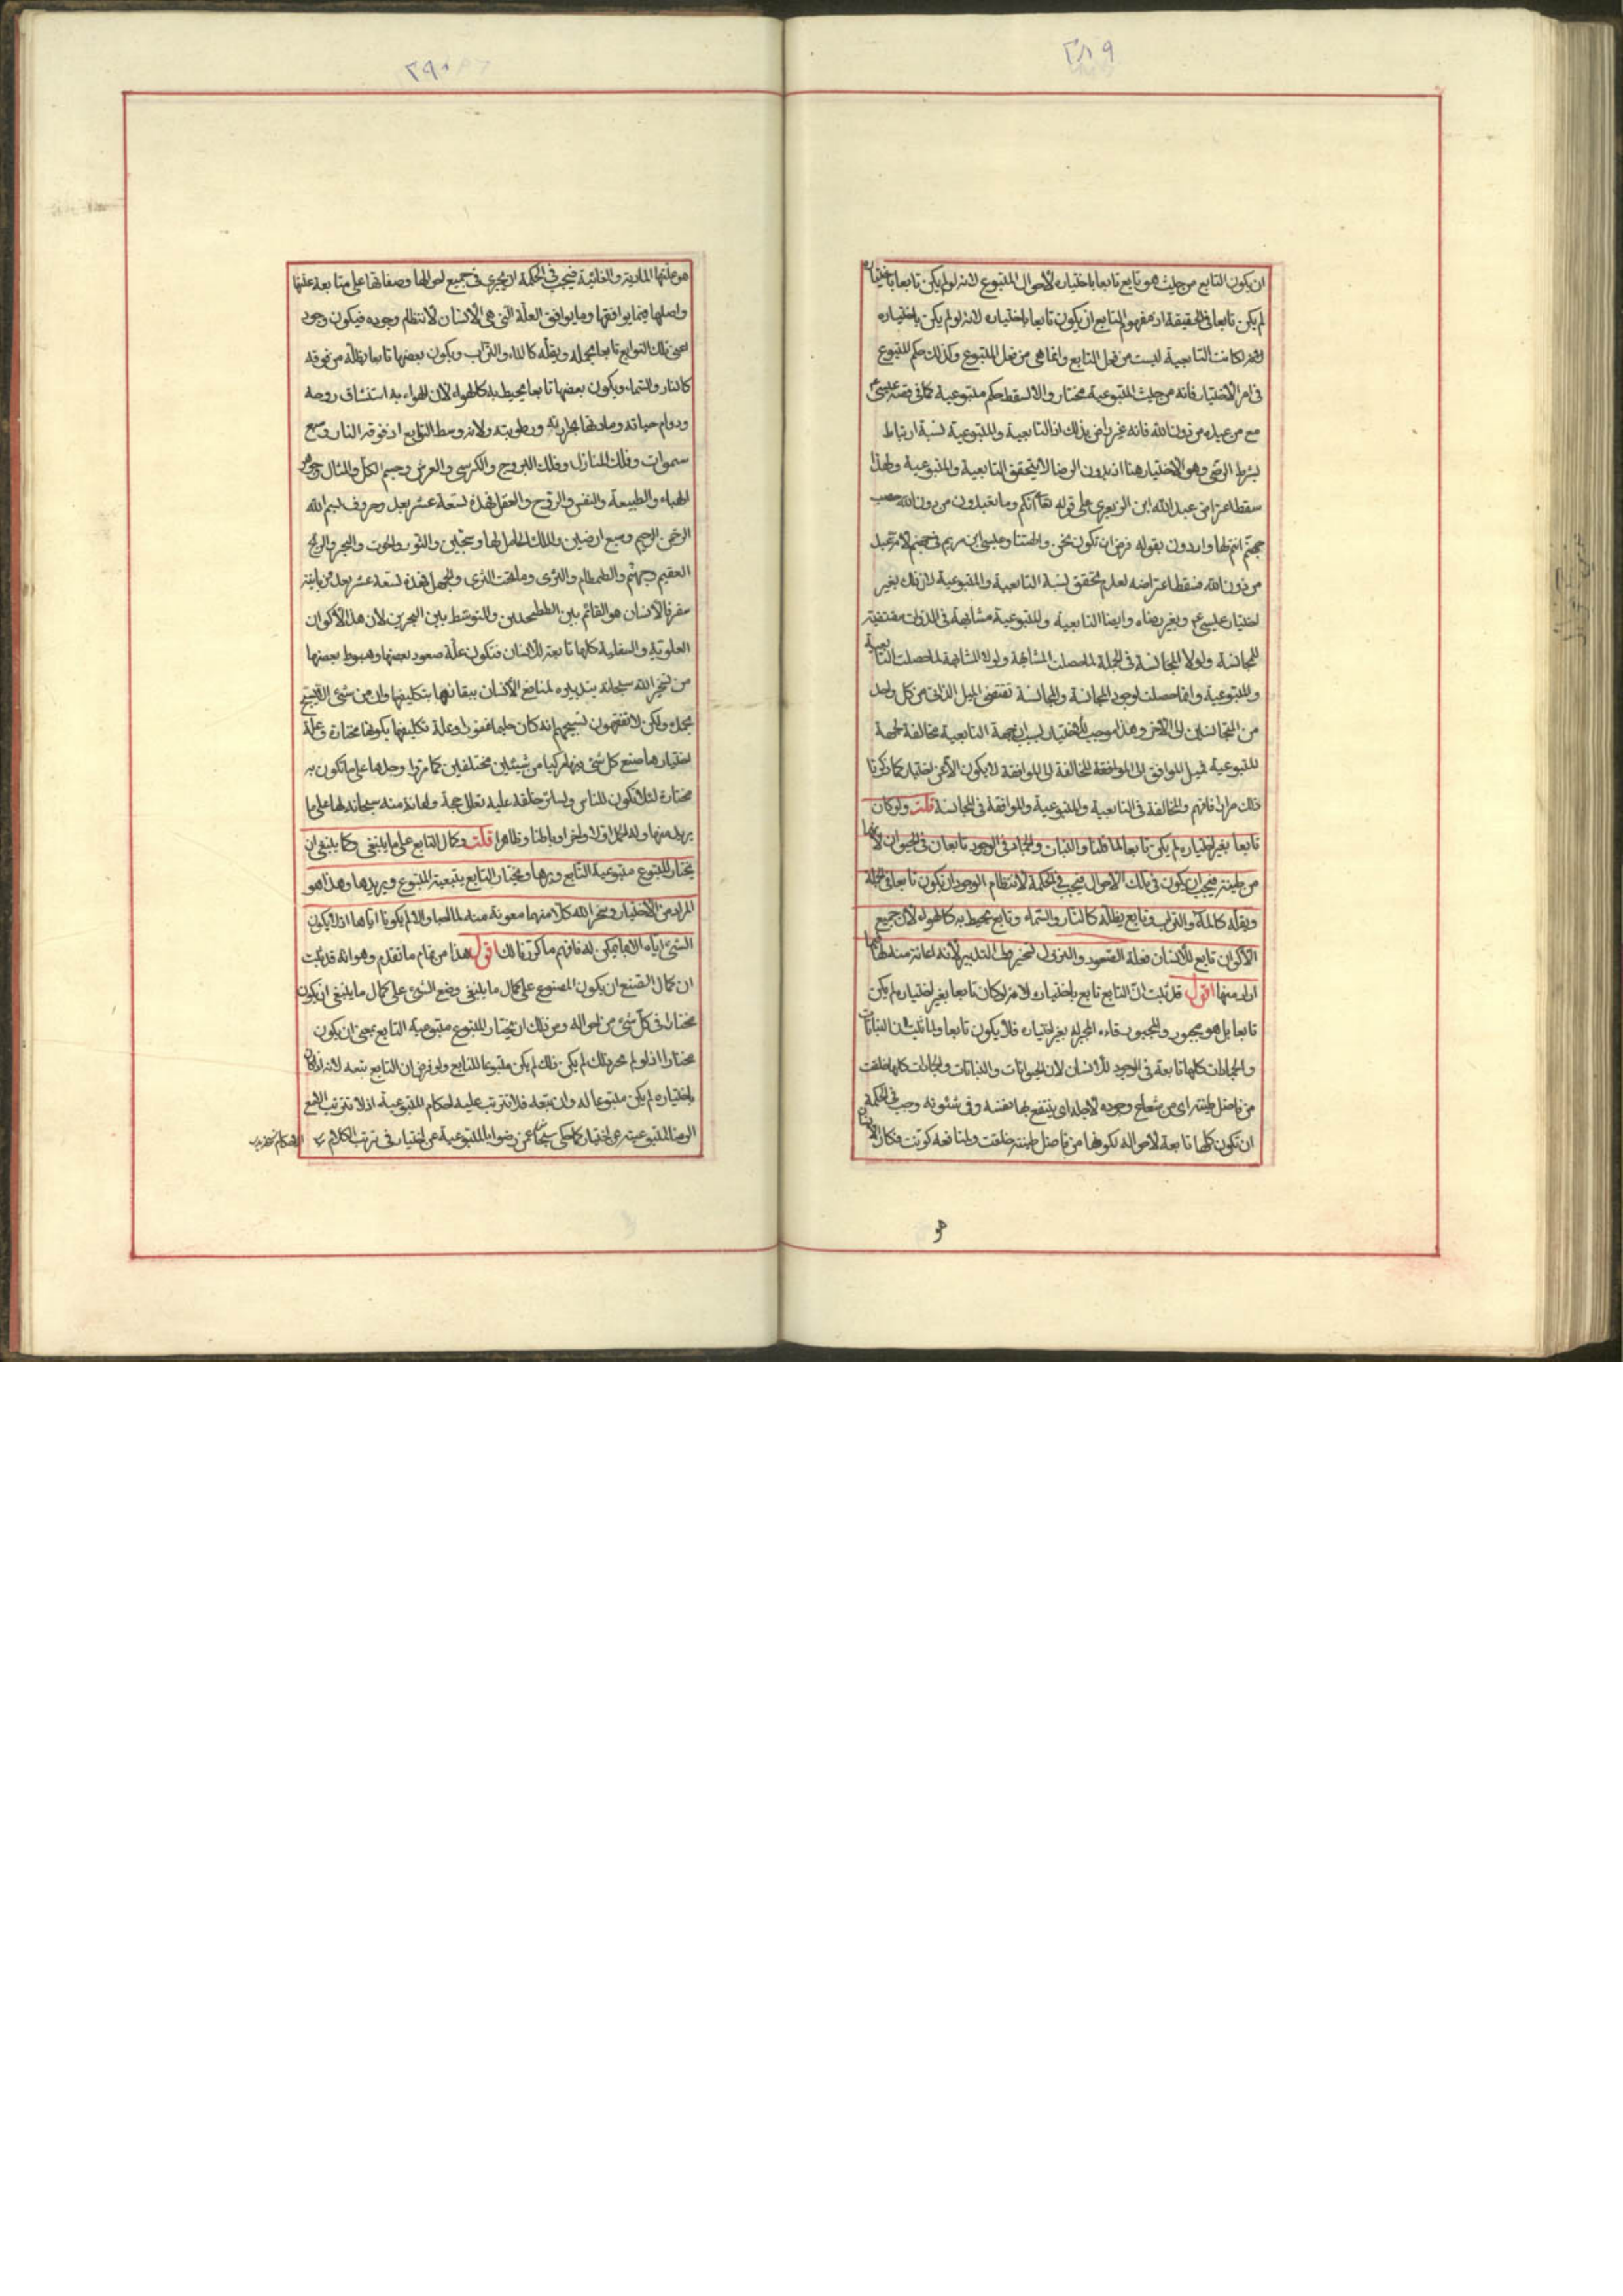 ٢٨٩
ان يكون التابع من حيث هو تابع تابعا باختياره لأحوال المتبوع لانه لو لم يكن تابعا باختياره
لم يكن تابعا في الحقيقة اذ مفهوم التابع ان يكون تابعا باختياره لانه لو لم يكن باختياره
كانت التابعية ليست من فعل التابع وانما هي من فعل المتبوع وكذلك حكم المتبوع
في امر الاختيار فانه من حيث المتبوعية مختار والا لسقط حكم متبوعية كما في قصة عيسى ع
مع من عبده من دون الله فانه غير راض بذلك اذ التابعية والمتبوعية نسبة ارتباط
بشرط الرضى وهو الاختيار هنا اذ بدون الرضا لا يتحقق التابعية والمتبوعية ولهذا
سقط اعتراض عبد الله ابن الزبعرى على قوله تعا انكم وما تعبدون من دون الله حصب
جهنم انتم لها واردون بقوله فرض ان نكون نحن والهتنا وعيسى ابن مريم في جهنم لانه عبد
من دون الله فسقط اعتراضه لعدم تحقق نسبة التابعية والمتبوعية لان ذلك بغير
اختيار عيسى ع وبغير رضاه وايضا التابعية والمتبوعية مشابهة في الذوات مقتضية
للمجانسة ولولا المجانسة في الجملة لما حصلت المشابهة ولولا المشابهة لما حصلت التابعية
والمتبوعية وانما حصلت لوجود المجانسة والمجانسة تقتضي الميل الذاتي من كل واحد
من المتجانسين الى الاخر وهذا موجب للاختيار لسبب ان جهة التابعية مخالفة لجهة
المتبوعية فميل الموافق الى الموافقة المخالفة الى الموافقة لا يكون الا عن اختيار كما ذكرنا
ذلك مرارا فافهم والمخالفة في التابعية والمتبوعية والموافقة في المجانسة قلت ولو كان
تابعا بغير اختياره لم يكن تابعا لما قلنا والنبات والجماد في الوجود تابعان في الحيوان لانهما
من طينته فيجب ان يكون في تلك الاحوال فيجب في الحكمة لانتظام الوجود ان يكون تابعا في حمله
ويقله كالماء والتراب وتابع يظله كالنار والسماء وتابع يحيط به كالهواء لان جميع
الاكوان تابع للأنسان فعلة الصعود والنزول لتحيط التدبير لانه اعانة منه لها لما
اراد منها اقول قد ثبت ان التابع تابع باختياره لانه لو كان تابعا بغير اختياره لم يكن
تابعا بل هو مجبور والمجبور قاده المجبر له بغير اختياره فلا يكون تابعا ولما ثبت ان النباتات
والجمادات كلها تابعة في الوجود للأنسان لان الحيوانات والنباتات والجمادات كلها خلقت
من فاضل طينته اي من شعاع وجوده لاجله اي ينتفع بها نفسه وفي شئونه وجب في الحكمة
ان تكون كلها تابعة لاحواله لكونها من فاضل طينته خلقت ولمنافعه كونت فكان الانسان
٢٩٠
هو علتها المادية والغائية فيجب في الحكمة ان يجري في جميع احوالها وصفاتها على متابعة علتها
واصلها فيما يوافقها وما يوافق العلة التي هي الأنسان لانتظام وجوده فيكون وجود
اعني تلك التوابع تابعا يحمله ويقله كالماء والتراب ويكون بعضها تابعا يظله من فوقه
كالنار والسماء ويكون بعضها تابعا يحيط به كالهواء لان الهواء به استنشاق روحه
ودوام حياته ومادتها بحرارته ورطوبته ولانه وسط التوابع اذ فوقه النار وسبع
سموات وفلك المنازل وفلك البروج والكرسي والعرش وجسم الكل والمثال وجوهر
الهباء والطبيعة والنفس والروح والعقل فهذه تسعة عشر بعدد حروف بسم الله
الرحمن الرحيم وسبع ارضين والملك الحامل لها وسجين والثور والحوت والبحر والريح
العقيم وجهنم والطمطام والثرى وما تحت الثرى والجهل فهذه تسعة عشر بعدد زبانية
سقر فالأنسان هو القائم بين الطتنجين والتوسط بين البحرين لان هذه الأكوان
العلوية والسفلية كلها تابعة للأنسان فتكون علة صعود بعضها وهبوط بعضها
من تسخير الله سبحانه بتدبيره لمنافع الأنسان ببقائها بتكليفها وان من شئ الا يسبح
بحمده ولكن لا تفقهون تسبيحهم انه كان حليما غفورا وعلة تكليفها بكونها مختارة وعلة
اختيارها صنع كل شئ منها مركبا من شيئين مختلفين كما مر واوجدها على ما تكون به
مختارة لئلا يكون للناس ولسائر خلقه عليه تعالى حجة واعانة منه سبحانه لها على ما
يريد منها وله الحمد اولا واخرا وباطنا وظاهرا قلت وكان التابع على ما ينبغي وكما ينبغي ان
يختار المتبوع متبوعية التابع ويريدها ويختار التابع تبعية المتبوع ويريدها وهذا هو
المراد من الأختيار وسخر الله كلا منهما معونة منه لما لهما والا لم يكونا اياها اذ لا يكون
الشئ اياه الا بما يمكن له فافهم ما كررنا لك اقول هذا من تمام ما تقدم وهو انه قد ثبت
ان كمال الصنع ان يكون المصنوع على كمال ما ينبغي وضع الشئ على كمال ما ينبغي ان يكون
مختارا في كل شئ من احواله ومن ذلك ان يختار المتبوع متبوعية التابع بمعنى ان يكون
مختارا اذ لو لم يرد ذلك لم يكن ذلك لم يكن متبوعا للتابع ولو فرض ان التابع تبعه لانه اذا كان
باختياره لم يكن متبوعا له وان تبعه فلا تترتب عليه احكام المتبوعية اذ لا تترتب الا مع
الرضا المتبوعية عن اختيار كما حكى سبحانه عمن رضوا بالمتبوعية عن اختيار في ترتب الكلام